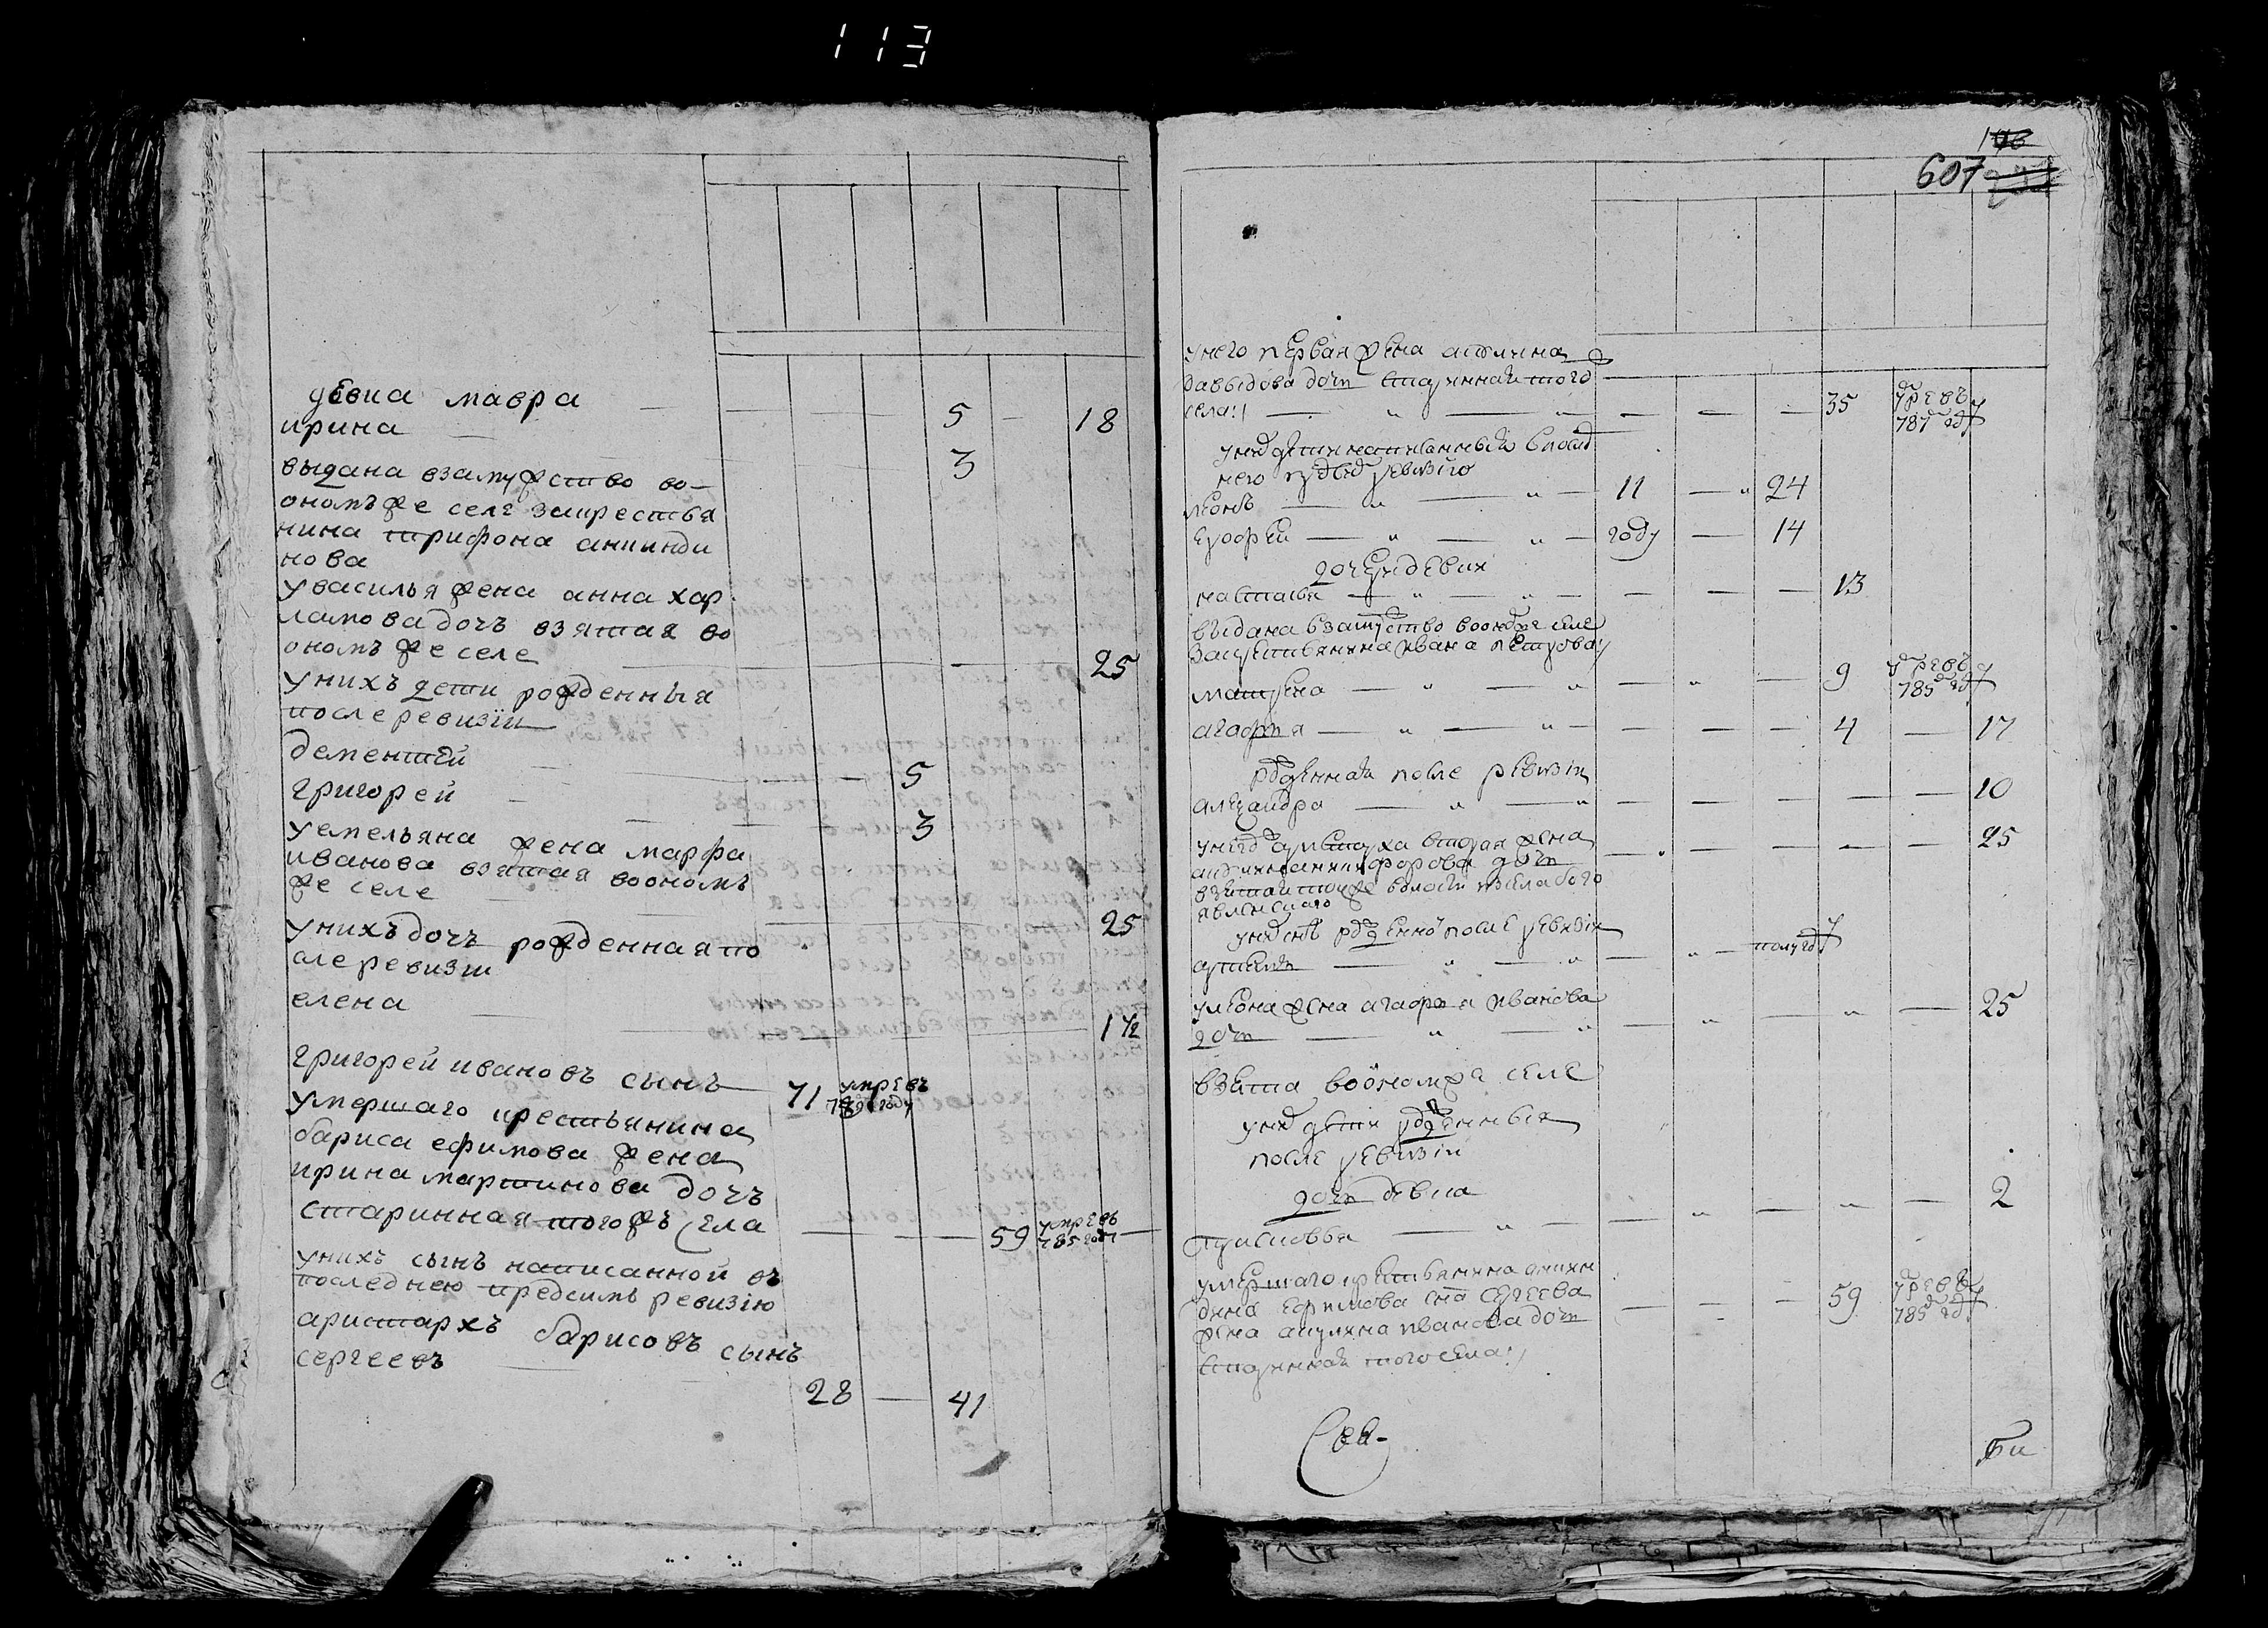 113
девка мавра — — — — 5 — 18
ирина — 3
выдана взамужство во-
ономъ же селе закрестья
нина трифона аникиди
нова
у василья жена анна хар
ламова дочь взятая во
ономъ же селе — — 25
у нихъ дети рожденныя
после ревизiи
дементей — — 5
григорей — — 3
у емельяна жена марфа
иванова взятая во ономъ
же селе — 25
у нихъ дочь рожденная по
сле ревизiи
елена — — 1 1/2
григорей ивановъ сынъ 71 умре въ 789 году
умершаго крестьянина
бариса ефимова жена
ирина мартинова дочь
старинная тогожъ села — — — 59 умре въ 785 году
у нихъ сынъ написанной въ
последнею предсимъ ревизiю
аристархъ барисовъ сынъ
сергеевъ
28 — 41
607
у него первая жена
давыдова дочь старинная того
села — — — — — 35 умре въ 787 году
у них дети написанный в послед
него пред сим ревизiю
леонъ — — 11 — 24
ерофей — — году — 14
дочери девки
настасья — — — — — 13
выдана в замужство во оном же селе
за крестьянина ивана петрова
матрена — — — — 9 умре въ 785 году
агафья — — — — — 4 — 17
рожденная после ревизiи
александра — — — — — — 10
у него аристарха вторая жена — — — — — 25
никифорова дочь
взятая той же волости из села бого
явленскаго
у них сынъ рожденной после ревизiи
артемей — — — полугоду
у леона жена агафья иванова
дочь — — — — — — 25
взята во ономже селе
у них дети рожденныя
после ревизiи
дочь девка
прасковья — — — — — — 2
умершаго крестьянина аники
дина ефимова сына сергеева — — — 59 умре въ 785 году
жена акулина иванова дочь
старинная того села